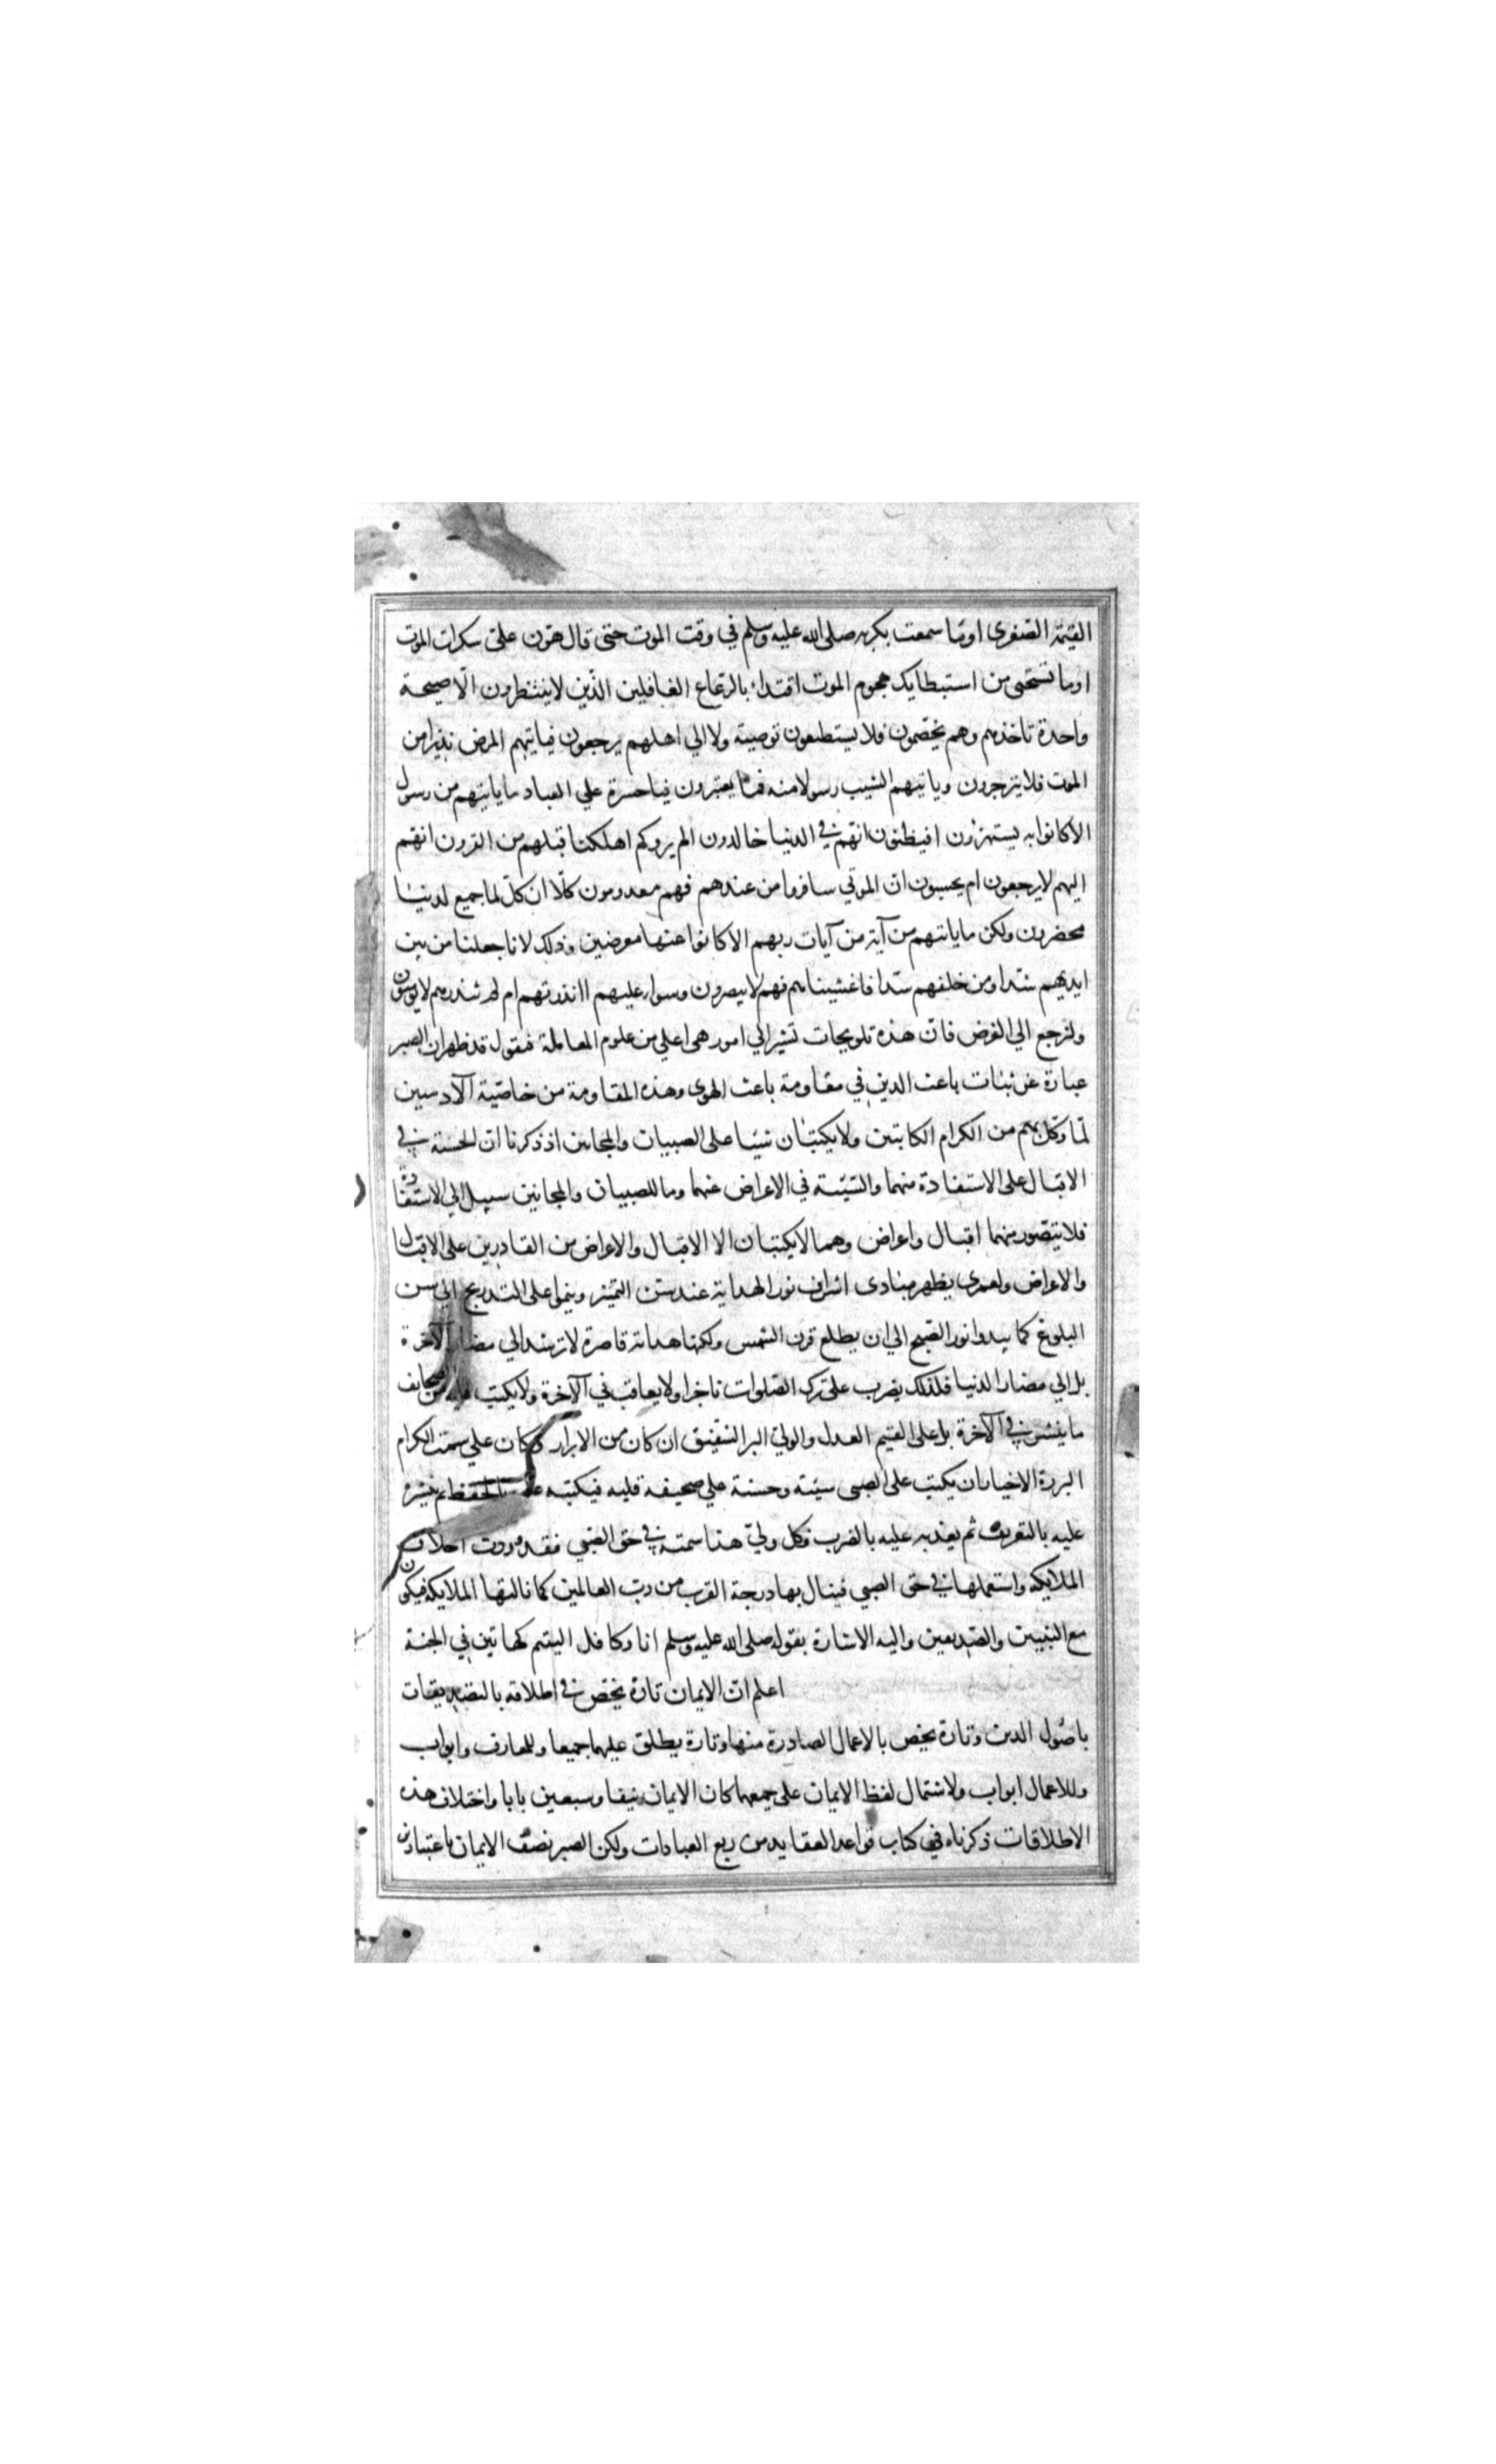 القيمة الصغرى اوما سمعت بكربه صلى الله عليه وسلم في وقت الموت حتى قال هون على سكرات الموت
اوما تستحى من استبطايك هجوم الموت اقتداء بالرعاع الغافلين الذين لا ينتظرون الا صيحة
واحدة تاخذهم وهم يخصمون فلا يستطيعون توصية ولا الي اهلهم يرجعون فياتيهم المرض نذيرا من
الموت فلا ينزجرون وياتيهم الشيب رسولا منه فما يعتبرون فيا حسرة علي العباد ما ياتيهم من رسول
الا كانوا به يستهزؤن افيظنون انهم في الدنيا خالدون الم يروكم اهلكنا قبلهم من القرون انهم
اليهم لا يرجعون ام يحسبون ان الموتي سافروا من عندهم فهم معدومون كلا ان كل لما جميع لدينا
محضرون ولكن ما ياتيهم من آية من آيات ربهم الا كانوا عنها معرضين وذلك لانا جعلنا من بين
ايديهم سدا ومن خلفهم سدا فاغشيناهم فهم لا يبصرون وسواء عليهم اانذرتهم ام لم تنذرهم لا يومنون
ولنرجع الي الغرض فان هذه تلويحات تشير الي امور هي اعلي من علوم المعاملة فنقول قد ظهر ان الصبر
عبارة عن ثبات باعث الدين في مقاومة باعث الهوى وهذه المقاومة من خاصية الآدميين
لما وكل بهم من الكرام الكاتبين ولا يكتبان شيئا على الصبيان والمجانين اذ ذكرنا ان الحسنة في
الاقبال على الاستفادة منهما والسيئة في الاعراض عنهما وما للصبيان والمجانين سبيل الي الاستفادة
فلا يتصور منهما اقبال واعراض وهما لا يكتبان الا الاقبال والاعراض من القادرين على الاقبال
والاعراض ولعمرى يظهر مبادى اشراف نور الهداية عند سن التميز وينموا على التدريج الي سن
البلوغ كما يبدوا نور الصبح الي ان يطلع قرن الشمس ولكنها هداية قاصرة لا ترشد الي مضار الآخرة
بل الي مضار الدنيا فلذلك يضرب على ترك الصلوات ناجزا ولا يعاقب في الآخرة ولا يكتب عليه من الصحايف
ما ينشر في الآخرة بل على القيم العدل والولي البر الشفيق ان كان من الابرار وكان علي سمت الكرام
البررة الاخيار ان يكتب على الصبى سيئة وحسنة علي صحيفة قلبه فيكتبه عليه بالحفظ ثم ينشره
عليه بالتعريف ثم يعذبه عليه بالضرب فكل ولي هذا سمته في حق الصبي فقد ورث اخلاق
الملايكة واستعملها في حق الصبي فينال بها درجة القرب من رب العالمين كما نالتها الملايكة فيكون
مع النبيين والصديقين واليه الاشارة بقوله صلى الله عليه وسلم انا وكافل اليتيم كهاتين في الجنة
اعلم ان الايمان تارة يختص في اطلاقه بالتصديقات
باصول الدين وتارة يخص بالاعمال الصادرة منها وتارة يطلق عليهما جميعا وللمعارف وابواب
وللاعمال ابواب ولاشتمال لفظ الايمان على جميعها كان الايمان نيفا وسبعين بابا واختلاف هذه
الاطلاقات ذكرناه في كتاب قواعد العقايد من ربع العبادات ولكن الصبر نصف الايمان باعتبارين